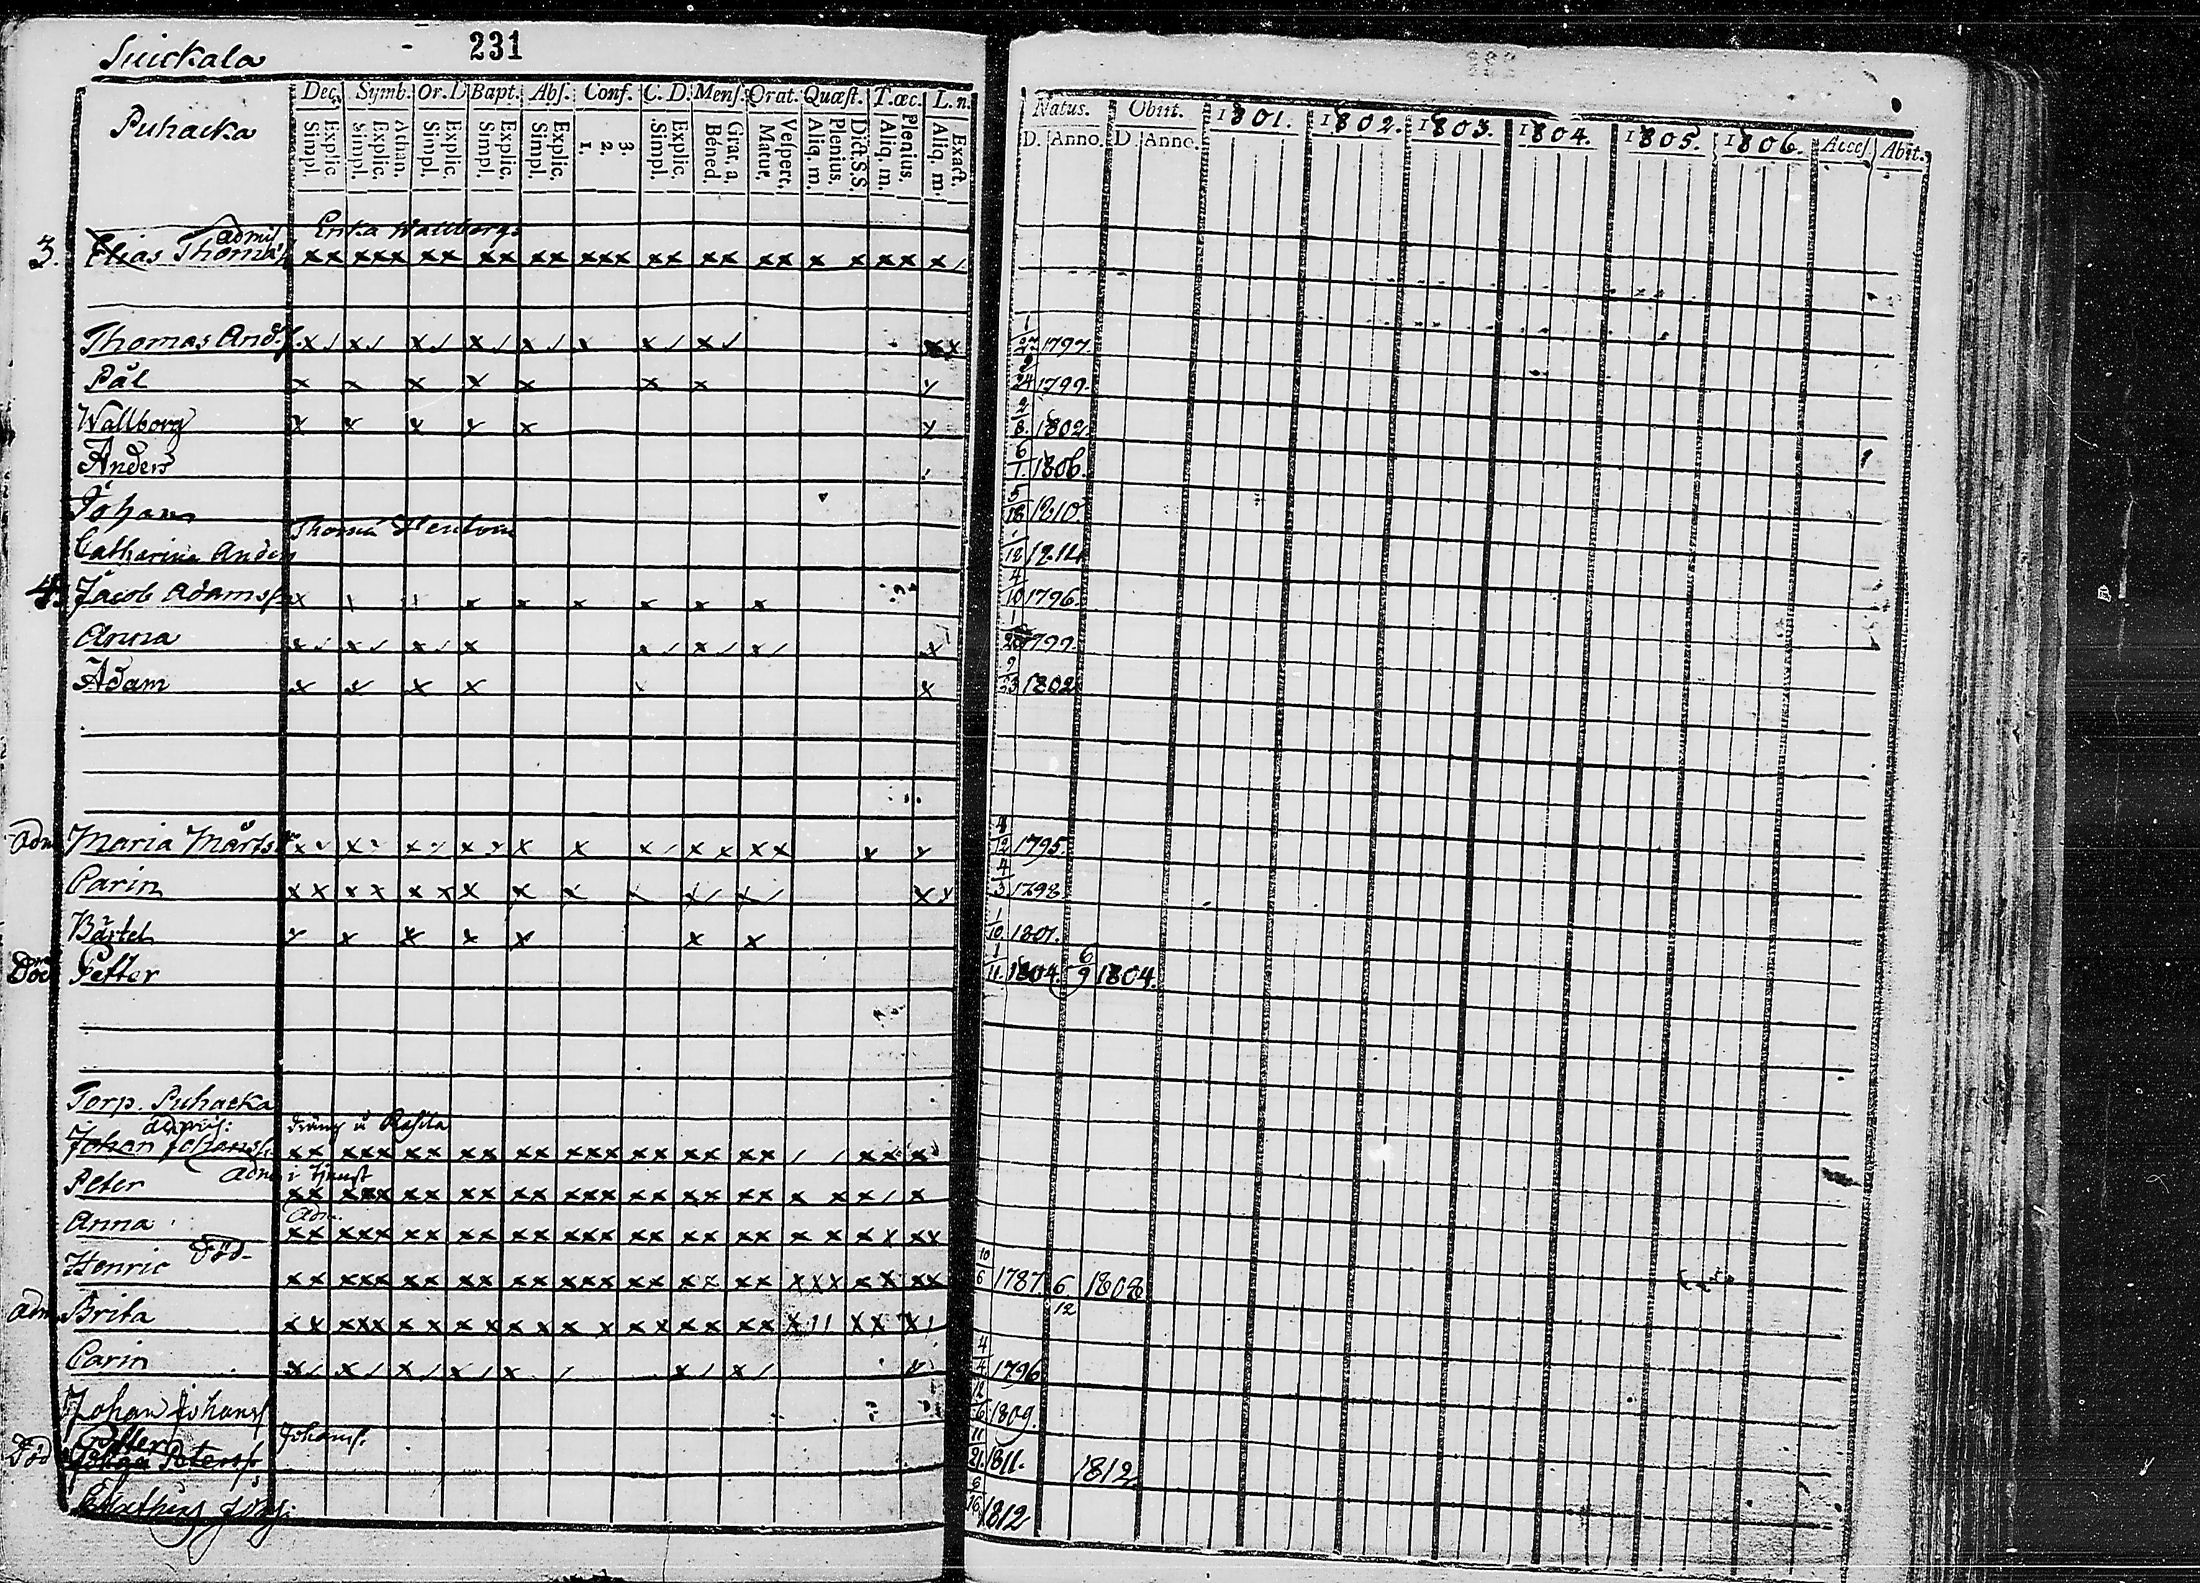 Suickala 231
Dec. Symb. Or. D Bapt. Abſ. Conf. C. D. Menſ. Orat. Quæſt. T. œc. L. n.
Puhacka
Simpl. Explic. Simpl. Explic. Athan. Simpl. Explic. Simpl. Explic. Simpl. Explic. 1. 2. 3. Simpl. Explic. Béned. Grat. a. Matut. Veſpert. Aliq. m. Plenius. Dict. S.S. Aliq. m. Plenius. Aliq. m. Exact.
Natus. Obiit. 1801. 1802. 1803. 1804. 1805. 1806. Acceſ Abit.
D. Anno. D Anno.
admiſ Enka Wallborg
3. Elias Thomaſ
Thomas Andſ. 1/27 1797.
Pål 2/24 1799.
Wallborg 2/8 1802.
Anders 6/1 1806.
Johan 5/18 1810.
Thomas
Catharina Anders
4. Jacob Adamsſ 4/10 1796.
Anna 1799.
Adam 9/23 1802
adm Maria Mårts 12 1795.
Carin 4/3 1798
Bärtel 1/10 1801.
Död Petter 1/11 1804. 6/9 1804.
Torp. Puhacka
admiſ: dräng
Johan Johansſ.
Peter adm i tjenst
Anna adm.
Henric död. 10/6 1787. 6/12 1808
adm Brita
Carin 4/4 1796
Johan Johansſ 12/6 1809.
Petter Johansſ.
Död Petersſ 11/21 1811. 1812
1812